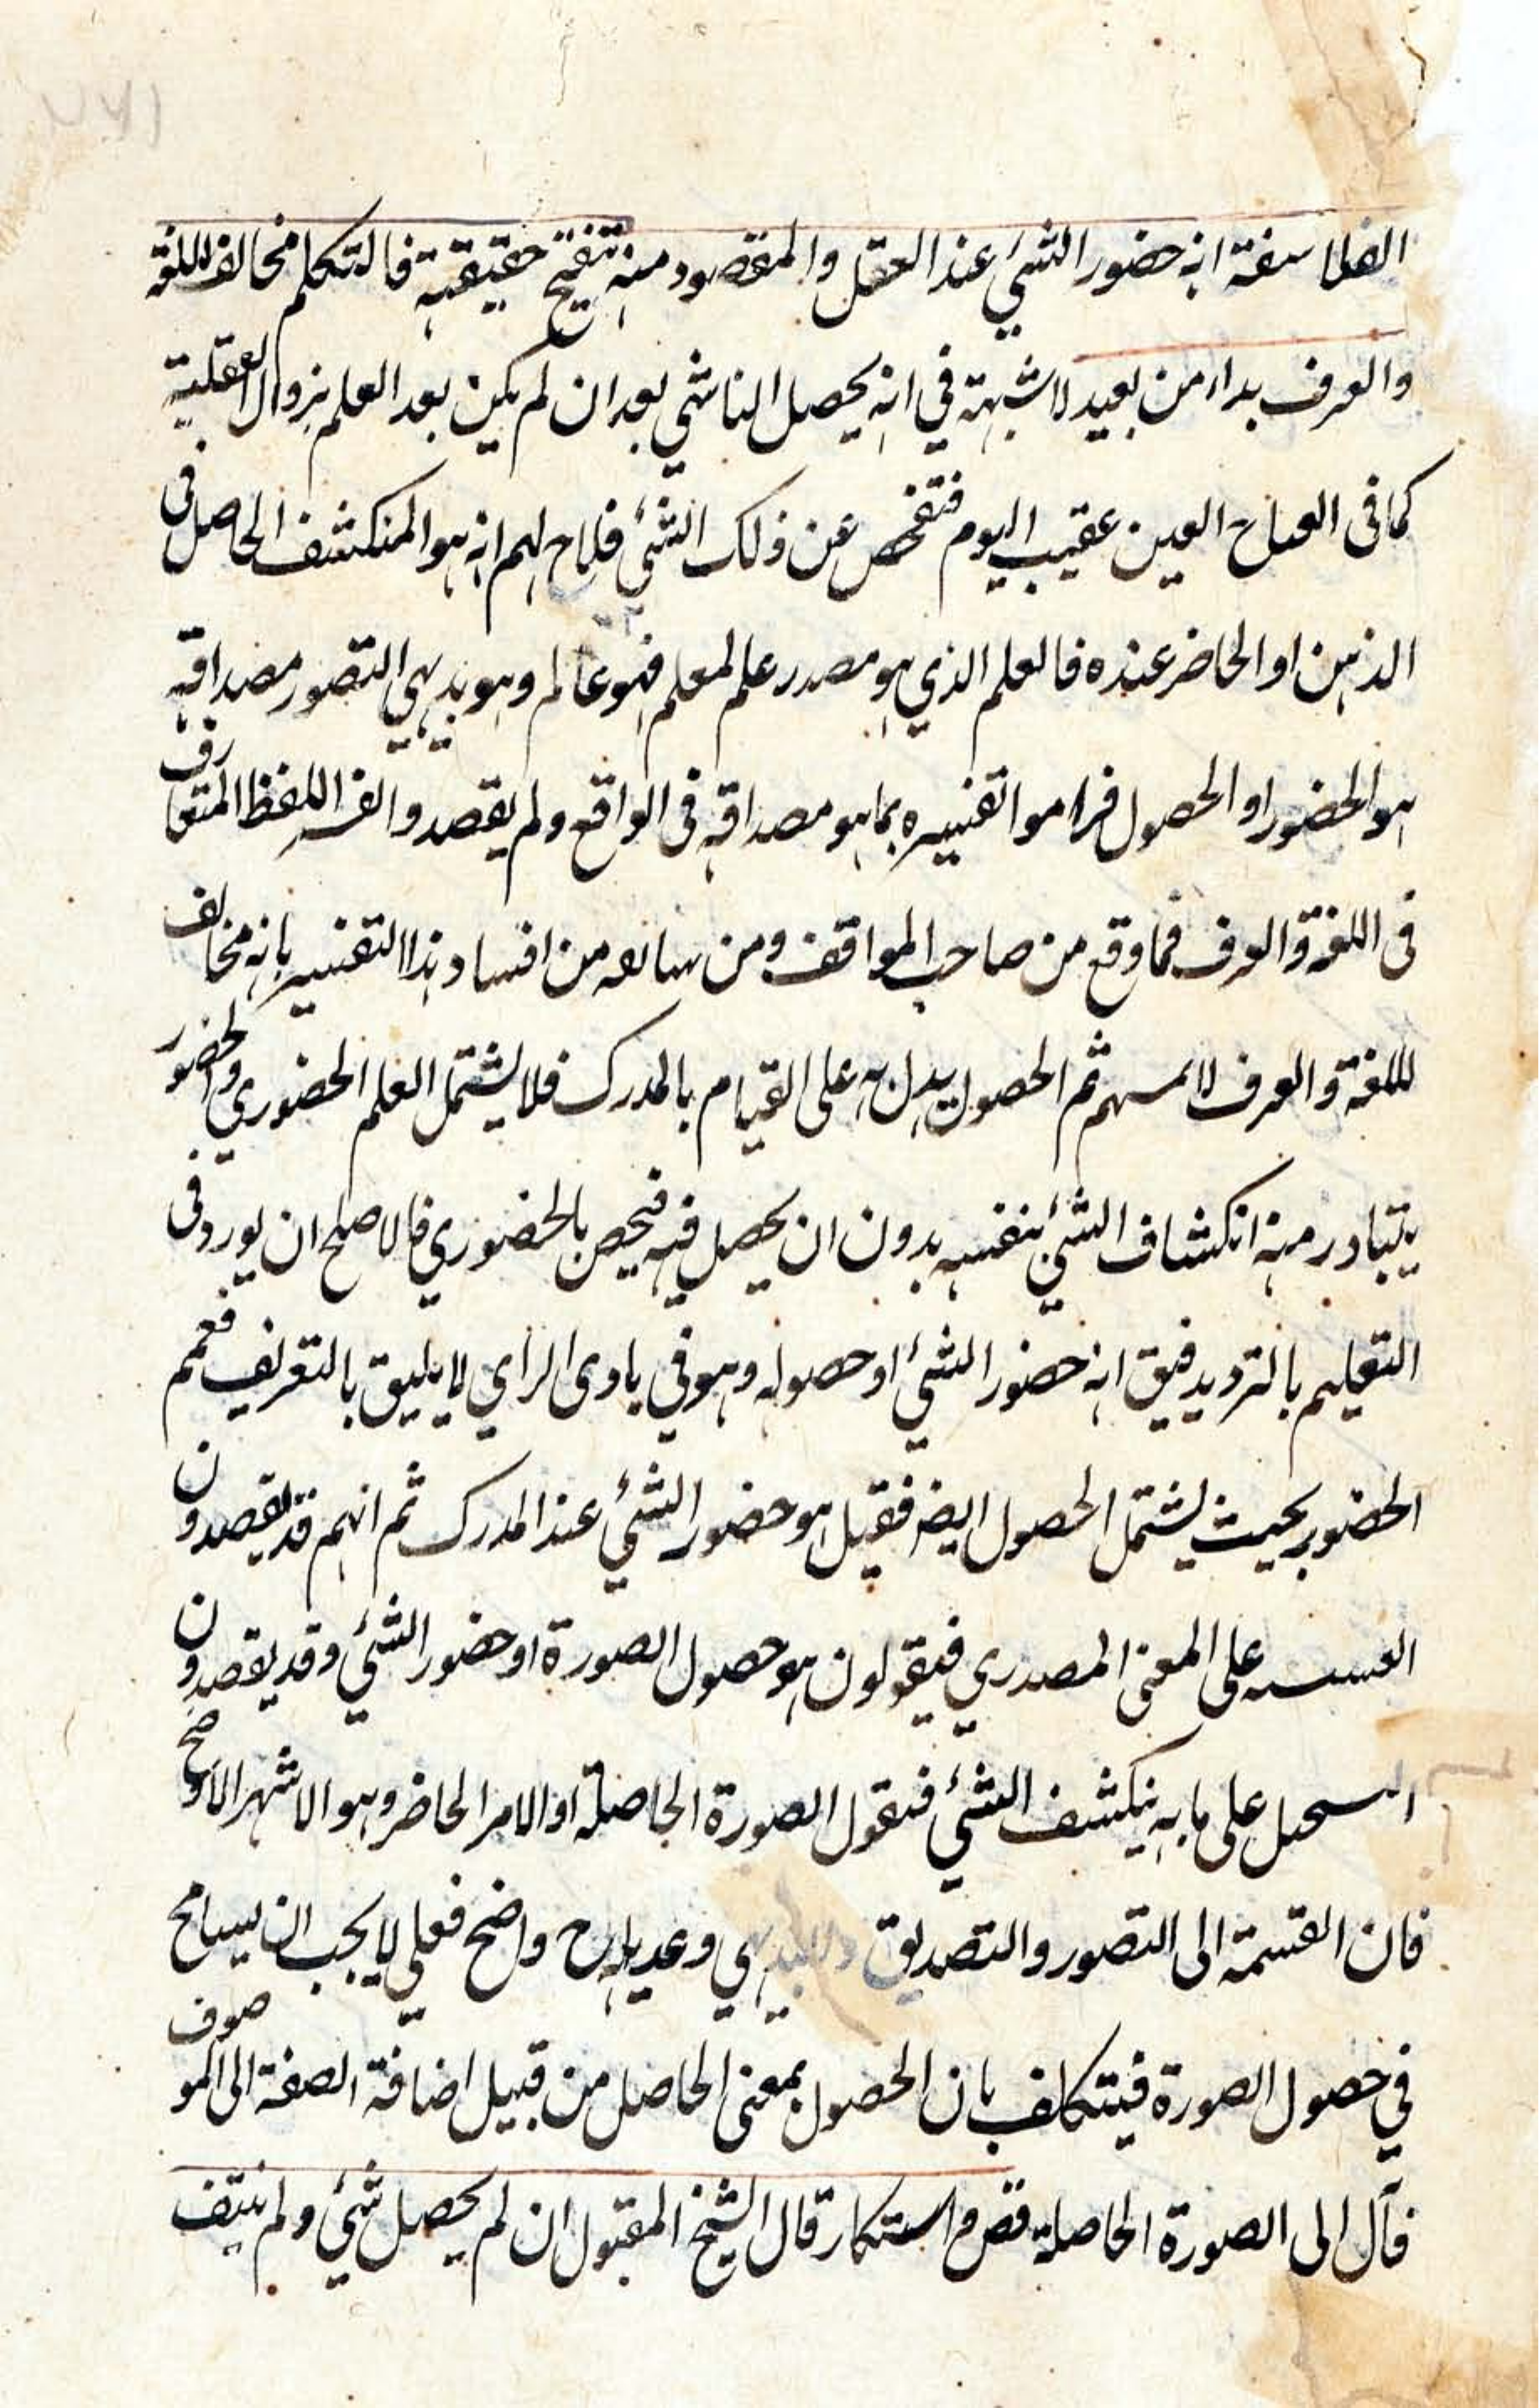 الفلاسفة انه حضور الشيء عند العقل والمقصود منه تنقيح حقيقته فالتكلم مخالف اللغة
والعرف بداء من بعيد لا شبهة في انه يحصل الناشي بعد ان لم يكن بعد العلم بزوال العقلية
كما في العين عقيب اليوم فتفحص عن ذلك الشئ فلاح لهم انه هو المنكشف الحاصل في
الذهن او الحاضر عنده فالعلم الذي هو مصدر علم لمعلم فهو عالم وهو بديهي التصور مصداقه
هو الحضور او الحصول فراموا تفسيره بما هو مصداقه في الواقع ولم يقصدوا اللفظ المتعارف
في اللغة والعرف فما وقع من صاحب المواقف ومن من افساد هذا التفسير بانه مخالف
للغة والعرف لا ثم الحصول يدل به على القيام بالمدرك فلا يشتمل العلم الحضوري والحضور
يتبادر منه انكشاف الشئ بنفسه بدون ان يحصل فيه فيخص بالحضوري فالاصلح ان يورد في
التعليم بالترديد فيق انه حضور الشئ او حصوله وهو في بادى الراي لا يليق بالتعريف فعمم
الحضور بحيث يشتمل الحصول ايضه فقيل هو حضور الشئ عند المدرك ثم انهم قد يقصدون
على المعنى المصدري فيقولون هو حصول الصورة او حضور الشئ وقد يقصدون
على ما به ينكشف الشئ فتقول الصورة الحاصلة او الامر الحاضر وهو الاشهر الاوضح
فان القسمة الى التصور والتصديق والبديهي وعديله ح واضح فعلي لا يجب ان يسامح
في حصول الصورة فيتكلف بان الحصول بمعنى الحاصل من قبيل اضافة الصفة الى الموصوف
فآل الى الصورة الحاصلة قال الشيخ المقتول ان لم يحصل شئ ولم ينتف